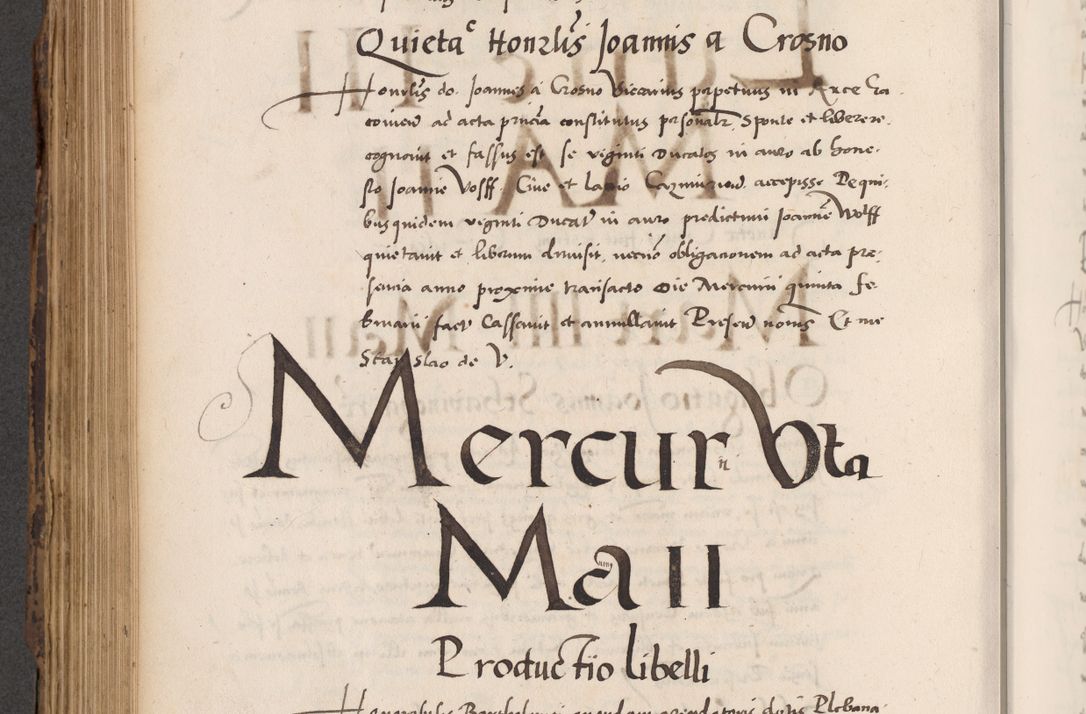 Quieta͡c Honrlis Joannis a Crosno
Honrlis do. Joannes a Crosno Viccarius perpetuus in Arce Cra-
covien ad acta pñcia constitutus personalr Sponte et libere re-
cognovit et fassus est se viginti Ducatos in auro ab hone-
sto Joanne Volff Cive et Cazmirien accepisse De qui-
busquidem viginti Ducat in auro predictum Joannē Wolff
quietavit et liberum dimisit, necnō obligacionem ad acta pre-
sencia anno proxime transacto Die Mercurii quinta fe-
bruarii fact Cassavit et annullavit Presen nobis Et me
Stanislao de V.
Mercur Vta
Maii
Productio libelli
Honorabilis Plebana